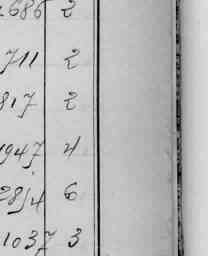 686 2
711 2
817 2
1947 4
2854 6
1037 3